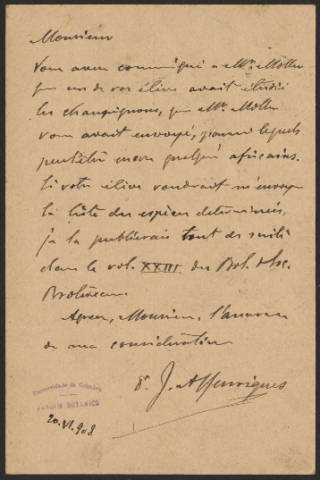 Monsieur
Vous avez communiqué a Mr. Möller
que un de vos élèves avait étudié
les champignons, que Mr. Möller
vous avait envoyé, parmi lesquels
peutêtre encore quelques africains.
Si votre élève voudrait m'envoyer
la liste des espèces determinées,
je la publierais tout de suite
dans le vol. XXIII du Bol. da Soc.
Broteriana.
Agréez, Monsieur, l'assurance
de ma consideration
Dr. J. A. Henriques
Universidade de Coimbra
JARDIM BOTANICO
20.VI.908